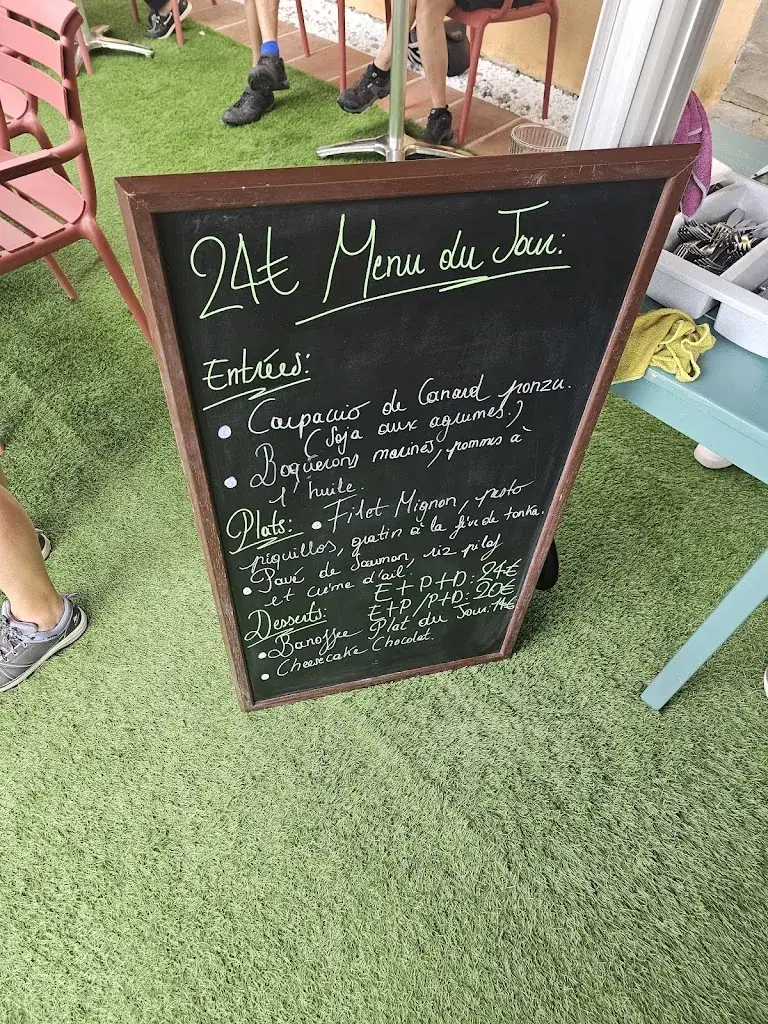 24€ Menu du Jour:
Entrées:
• Carpaccio de Canard ponzu.
(Soja aux agrumes.)
• Boquerons marinés, pommes à
l'huile.
Plats: • Filet Mignon, pesto
piquillos, gratin à la fève de tonka.
• Pavé de Saumon, riz pilaf
et crème d'ail.
E+P+D: 24€
Desserts: E+P/P+D: 20€
• Banoffee Plat du Jour: 14€
• Cheesecake Chocolat.